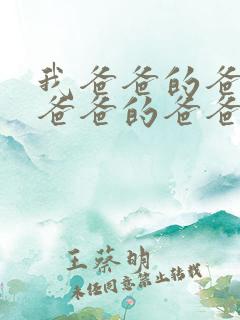 我爸爸的爸
爸爸的爸爸
王蔡明
未经同意禁止转载